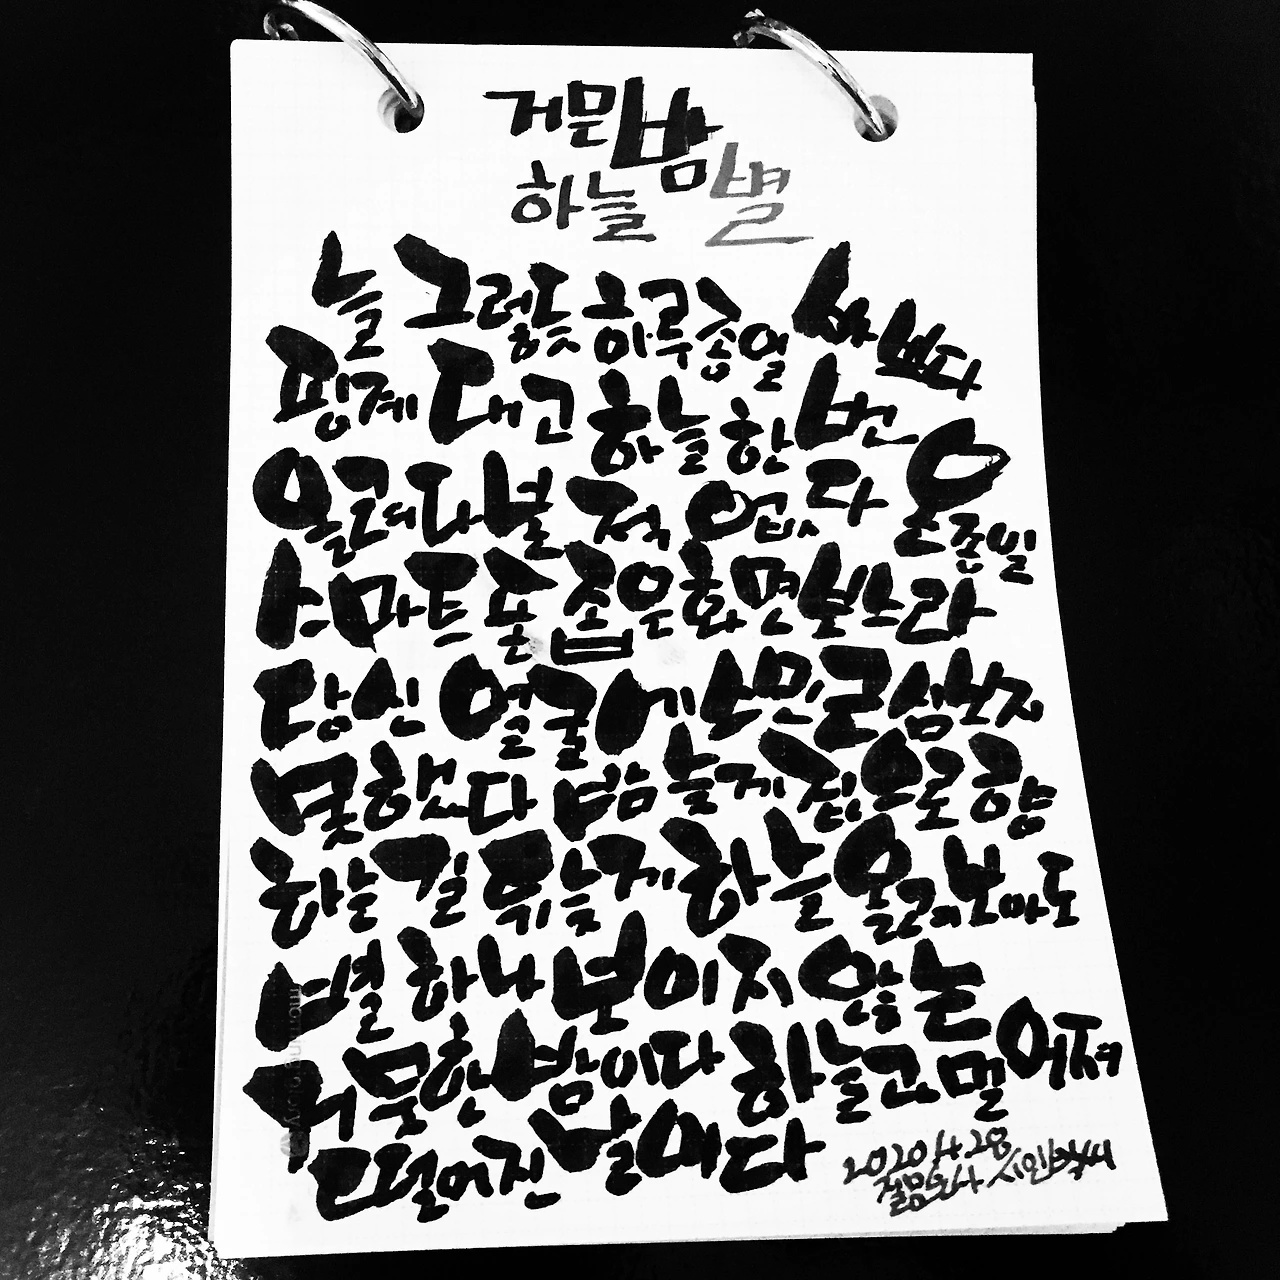 거믄밤
하늘 별
늘 그렇듯 하루종일 바쁘다
핑계대고 하늘 한번
올려다볼 적 없다 온종일
스마트폰 좁은 화면 보느라
당신 얼굴에 수민근심 보지
못했다 밤늦게 집으로 향
하는 길 뒤늦게 하늘 올려보아도
별 하나 보이지 않는
거뭇한 밤이다 하늘과 멀어져
떨어진 날이다
2020.4.28
시인박씨